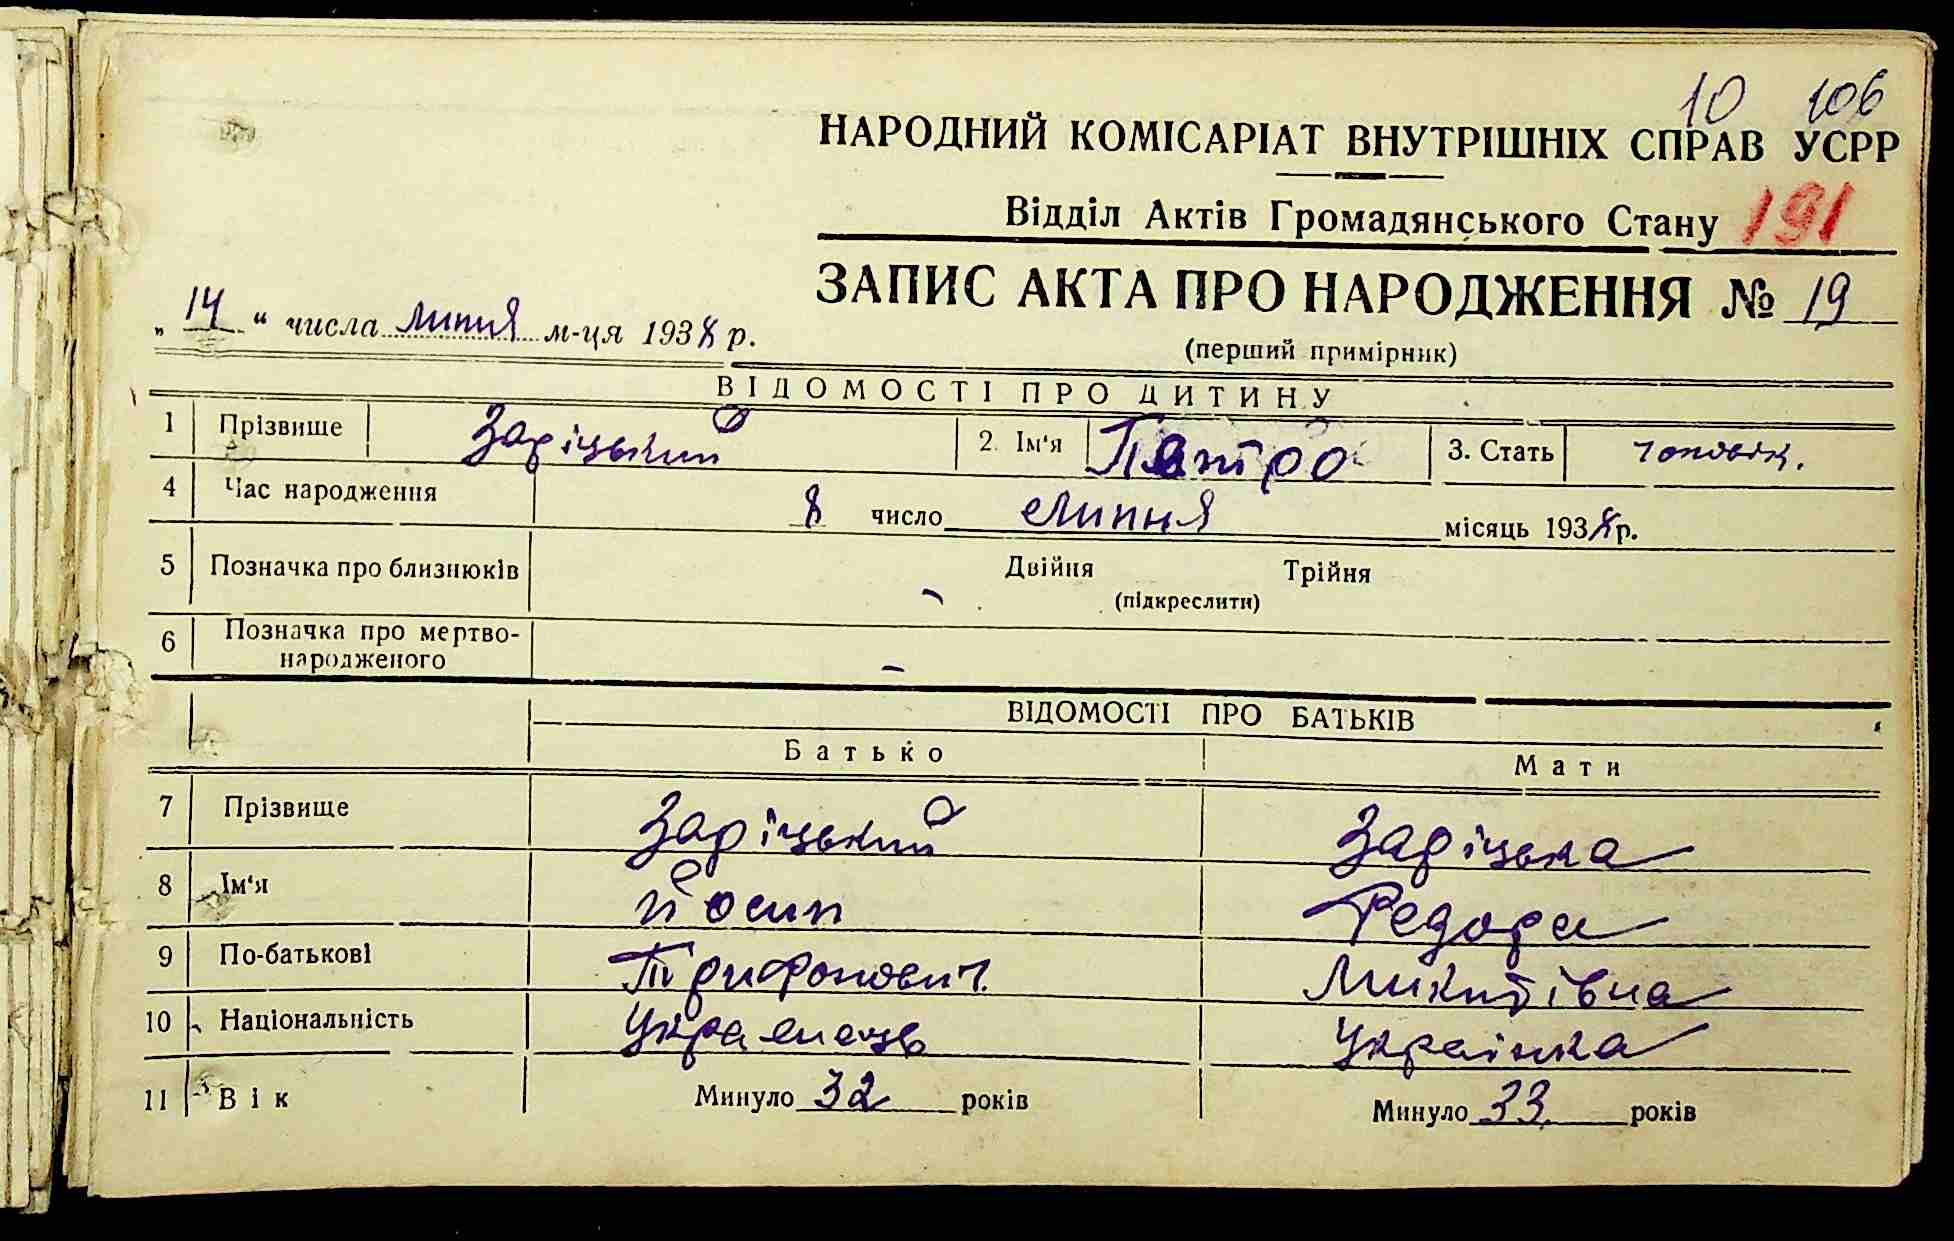 10 106
НАРОДНИЙ КОМІСАРІАТ ВНУТРІШНІХ СПРАВ УСРР
Відділ Актів Громадянського Стану 191
ЗАПИС АКТА ПРО НАРОДЖЕННЯ № 19
„ 14 “ числа липня м-ця 1938 р.
(перший примірник)
ВІДОМОСТІ ПРО ДИТИНУ
1 Прізвище Заріцький 2. Ім‘я Петро 3. Стать чоловік.
4 Час народження 8 число липня місяць 1938 р.
5 Позначка про близнюків Двійня Трійня
– (підкреслити)
6 Позначка про мертво-
народженого –
ВІДОМОСТІ ПРО БАТЬКІВ
Батько Мати
7 Прізвище Заріцький Заріцька
8 Ім‘я Йосип Федора
9 По-батькові Трифонович Микитівна
10 Національність Українець Українка
11 Вік Минуло 32 років Минуло 33 років